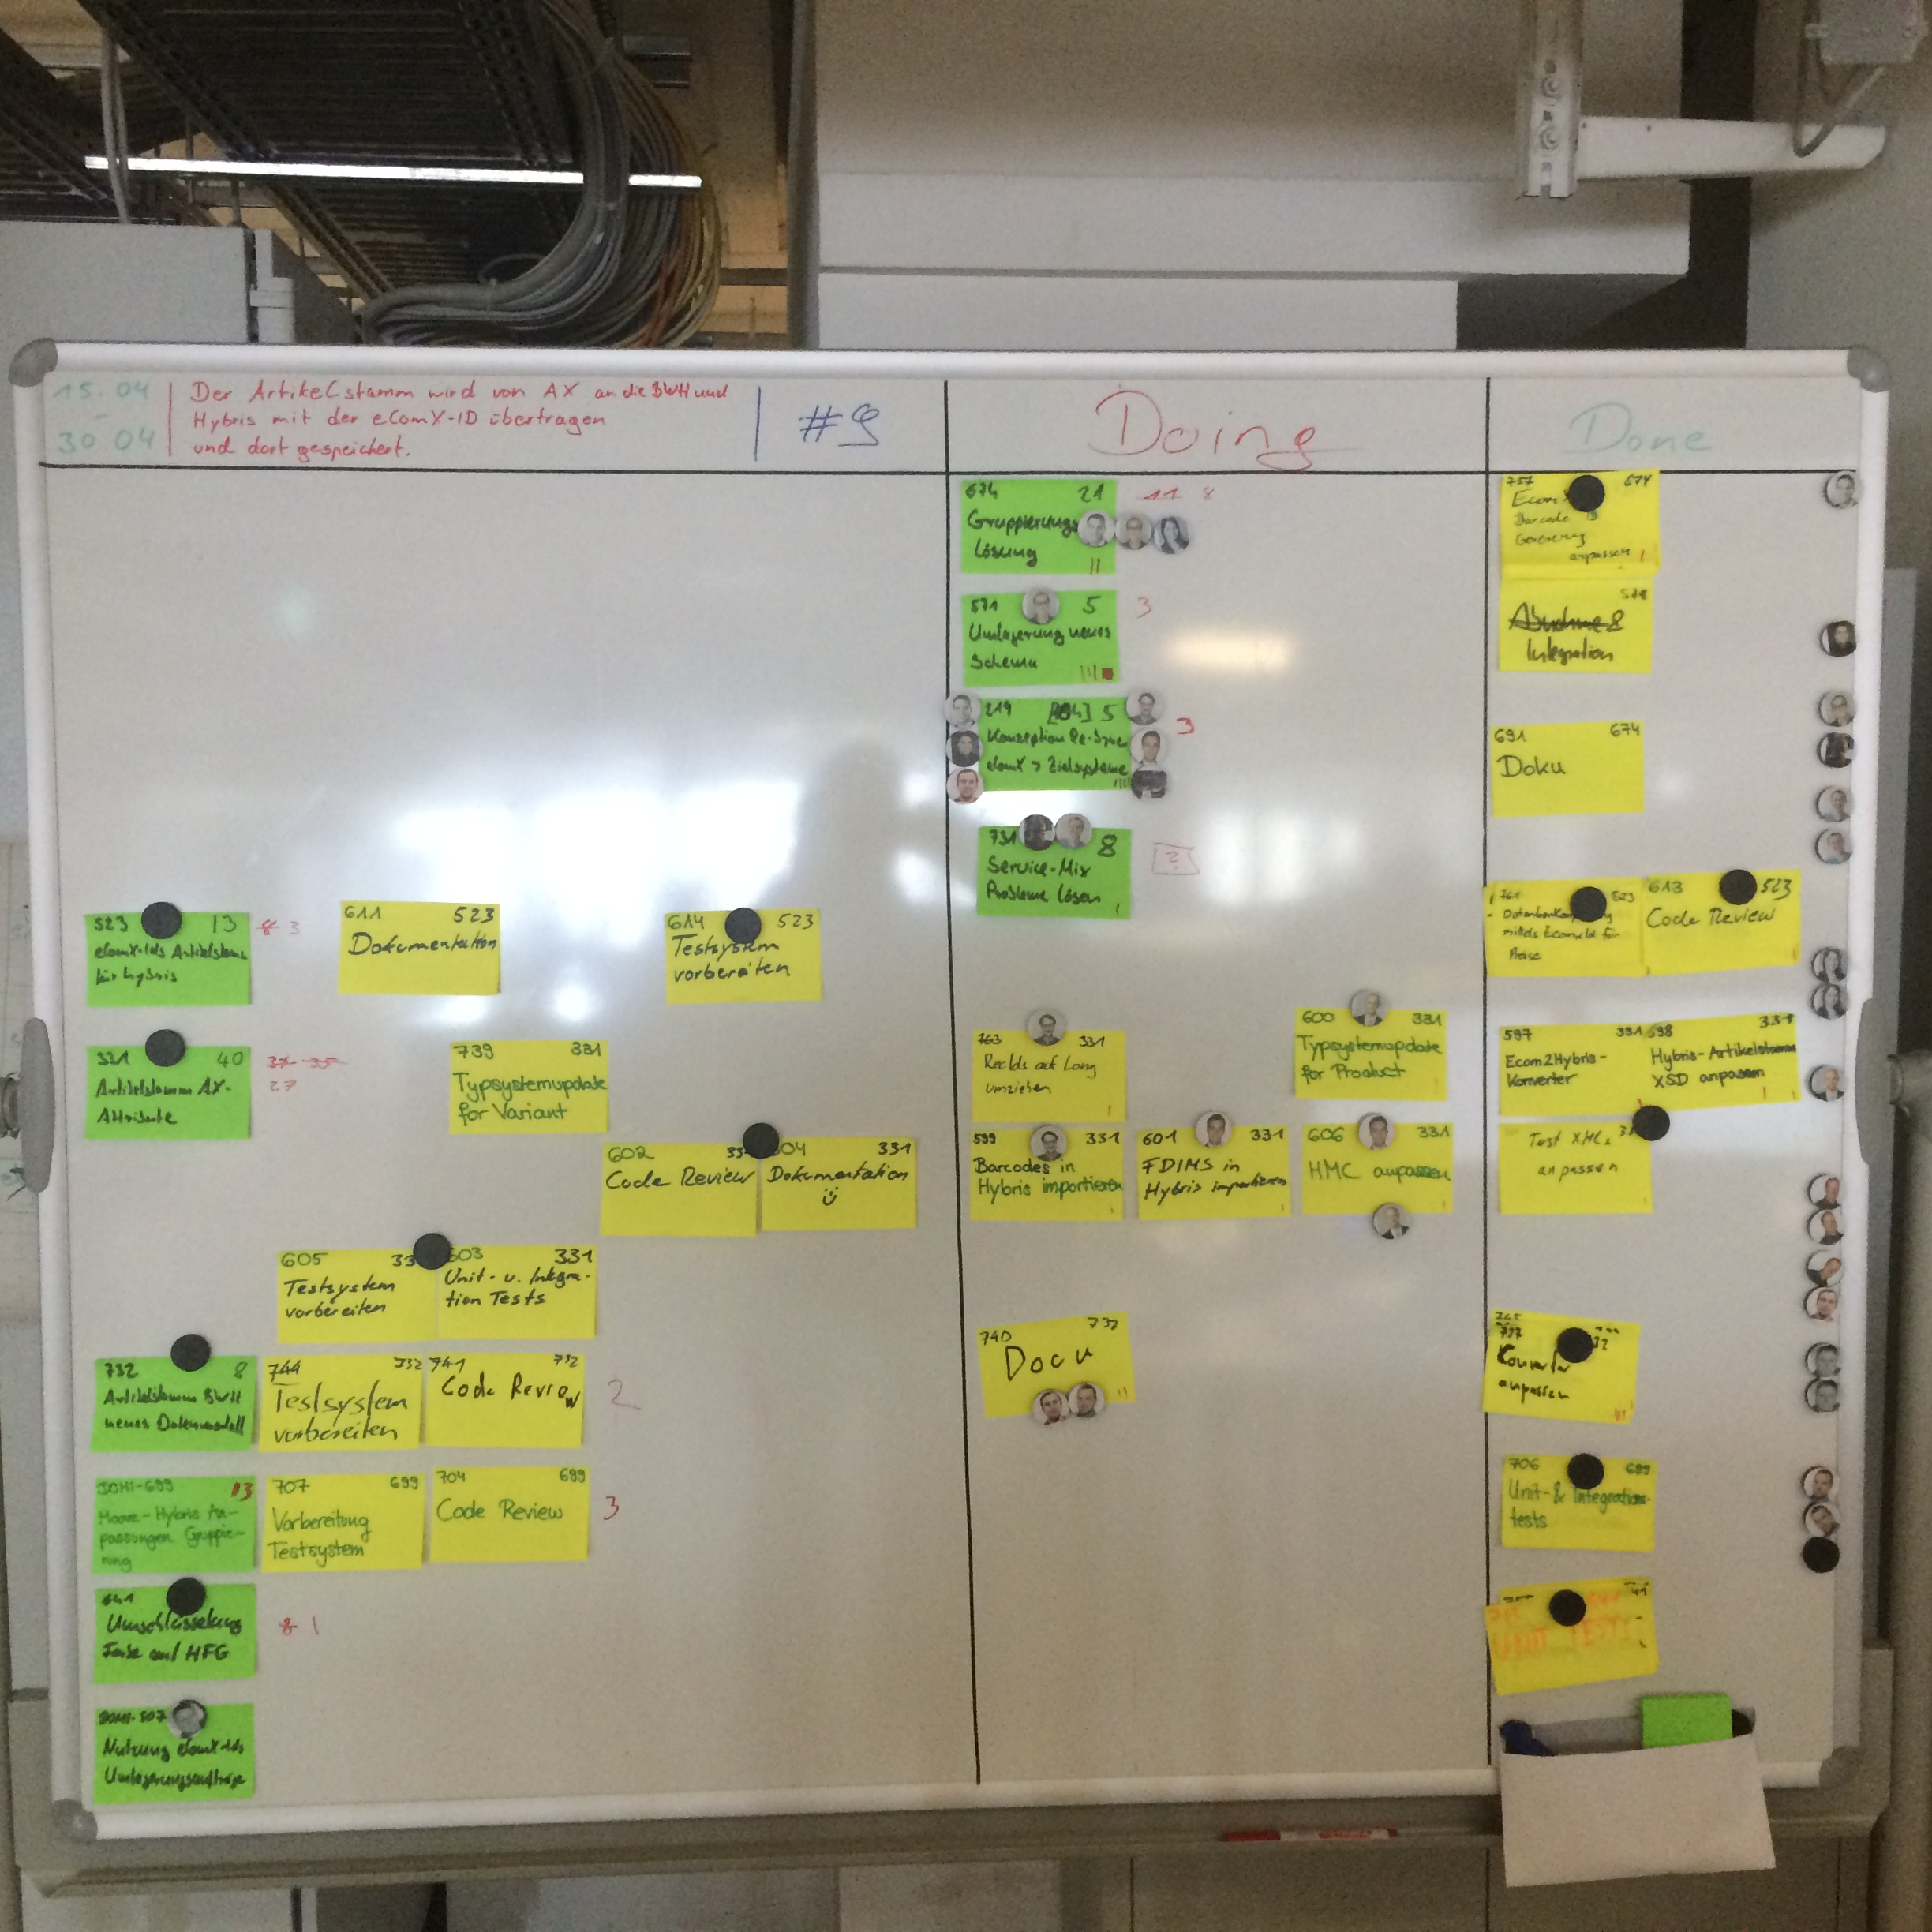 15.04
-
30 04
Der Artikelstamm wird von AX an die BWH und
Hybris mit der eComX-ID übertragen
und dort gespeichert.
#9
Doing
Done
523 13
eComX-Ids Artikelstamm
für Hybris
8 3
611 523
Dokumentation
614 523
Testsystem
vorbereiten
331 40
Artikelstamm AX-
Attribute
37 35
27
739 331
Typsystemupdate
for Variant
602
Code Review
604 331
Dokumentation
605
Testsystem
vorbereiten
603 331
Unit- u. Integra-
tion Tests
732 8
Artikelstamm BWH
neues Datenmodell
744 732
Testsystem
vorbereiten
741 732
Code Review
2
DOMI-699 13
Moove-Hybris An-
passungen Gruppie-
rung
707 699
Vorbereitung
Testsystem
704 699
Code Review
3
641
Umschlüsselung
Farbe auf HFG
8 1
DOMI-507
Nutzung eComX-Ids
Umlagerungsaufträge
674 21
Gruppierungs
Lösung
11 8
571 5
Umlagerung neues
Schema
3
219 5
Konzeption Re-Sync
eComX > Zielsysteme
3
731 8
Service-Mix
Probleme lösen
2
763 331
RecIds auf Long
umziehen
600 331
Typsystemupdate
for Product
599 331
Barcodes in
Hybris importieren
601 331
FDIMS in
Hybris importieren
606 331
HMC anpassen
740 732
Docu
757 674
Barcode
Generierung
anpassen
571
Abnahme &
Integration
691 674
Doku
761 523
für
Preise
613 523
Code Review
597 331
Ecom2Hybris-
Konverter
598 331
Hybris-Artikelstamm
XSD anpassen
Test XMLs
anpassen
737
Konverter
anpassen
706 699
Unit- & Integration-
tests
UNIT TESTS